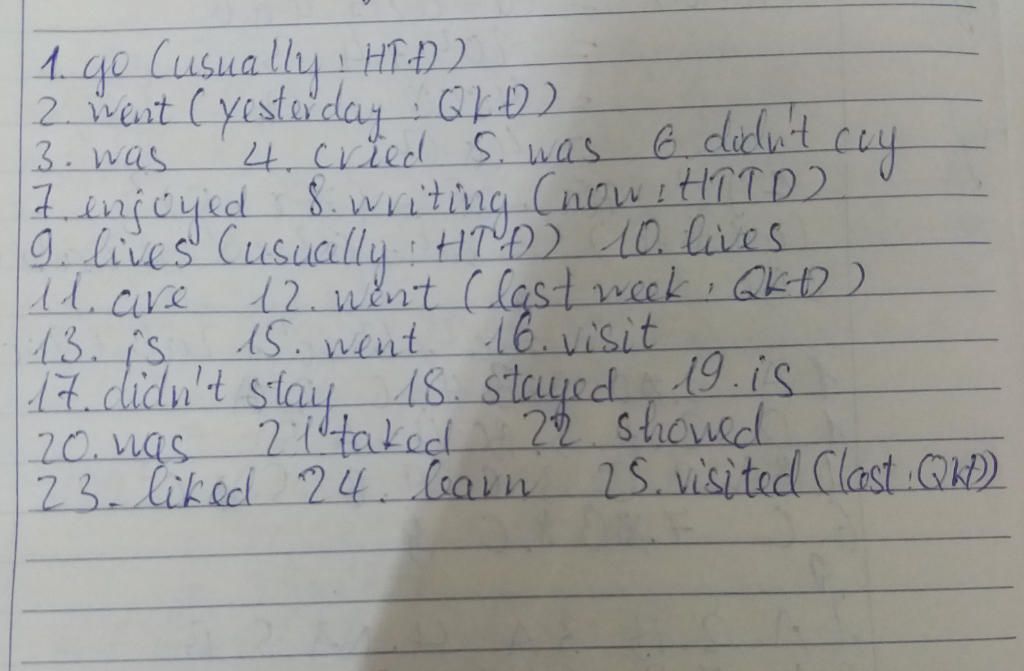 1. go (usually : HTĐ)
2. went (yesterday : QKĐ)
3. was 4. cried 5. was 6. didn't cry
7. enjoyed 8. writing (now : HTTD)
9. lives (usually : HTĐ) 10. lives
11. are 12. went (last week : QKĐ)
13. is 15. went 16. visit
17. didn't stay 18. stayed 19. is
20. was 21. taked 22. showed
23. liked 24. learn 25. visited (last : QKĐ)